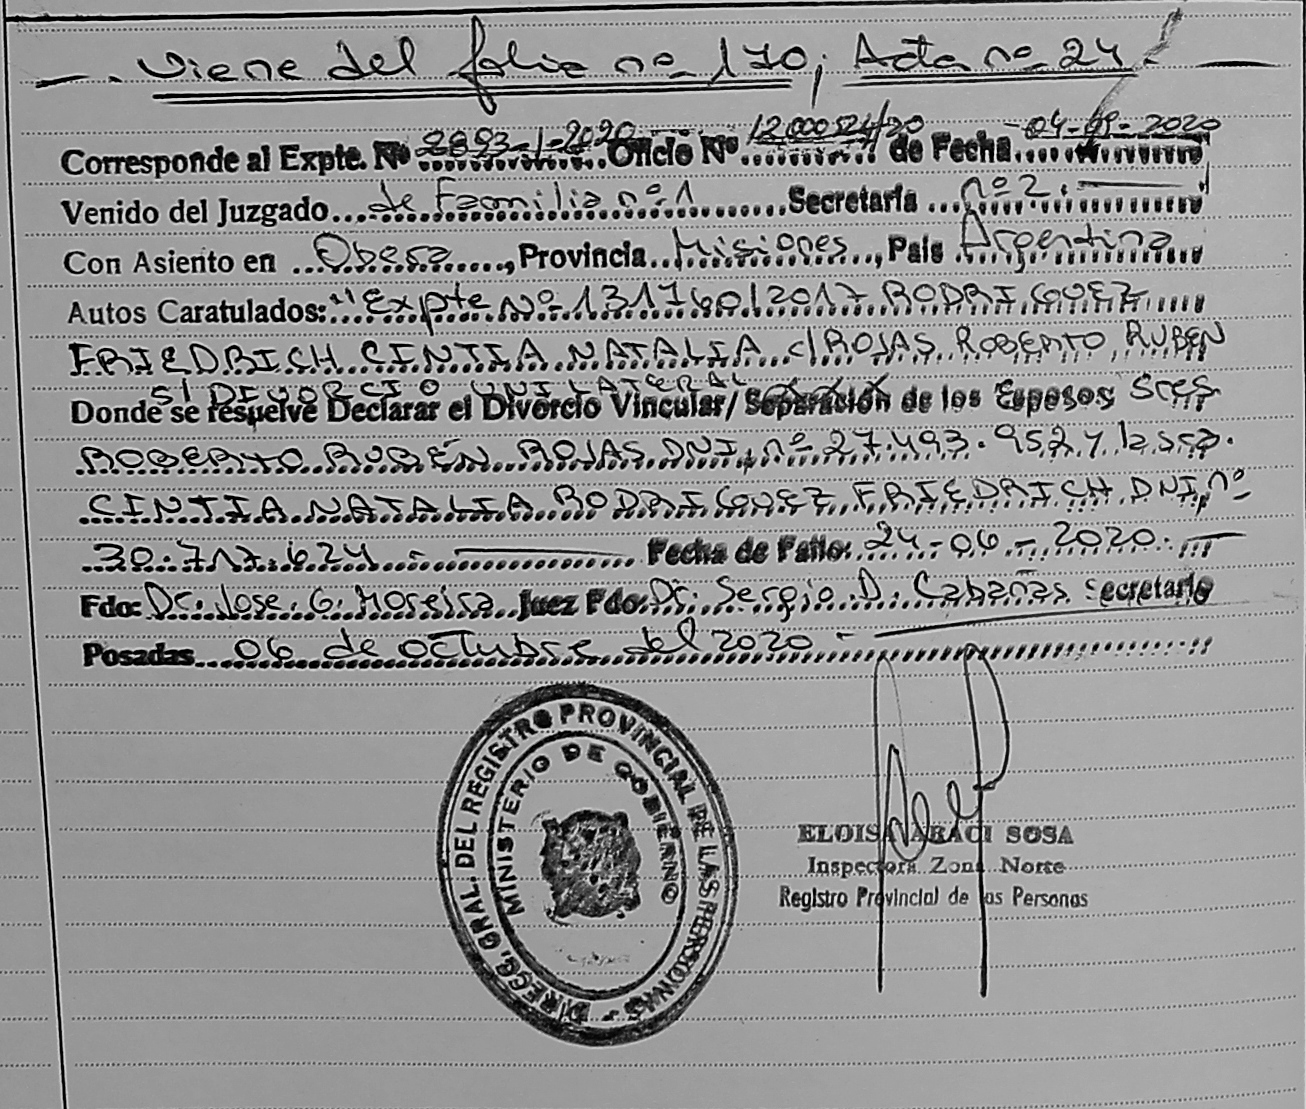 . Viene del folio nº 170; Acta nº 24.
Corresponde al Expte. Nº 2893-1-2020 Oficio Nº 12000524/20 de Fecha 04-09-2020
Venido del Juzgado de Familia nº 1 Secretaría nº 2.
Con Asiento en Obera, Provincia Misiones, País Argentina
Autos Caratulados: "Expte Nº 131760/2017 RODRIGUEZ
FRIEDRICH CINTIA NATALIA c/ ROJAS ROBERTO RUBEN
S/ DIVORCIO UNILATERAL
Donde se resuelve Declarar el Divorcio Vincular/ Separación de los Esposos Sres
ROBERTO RUBÉN ROJAS DNI, nº 27.493.952 y la sra.
CINTIA NATALIA RODRIGUEZ FRIEDRICH DNI, nº
30.717.624.- Fecha de Fallo: 24-06-2020.
Fdo: Dr. Jose. G. Moreira Juez Fdo: Dr. Sergio. D. Cabañas Secretario
Posadas 06 de octubre del 2020-
DIRECC. GRAL. DEL REGISTRO PROVINCIAL DE LAS PERSONAS -
MINISTERIO DE GOBIERNO
SOSA
Inspectora Zona Norte
Registro Provincial de las Personas